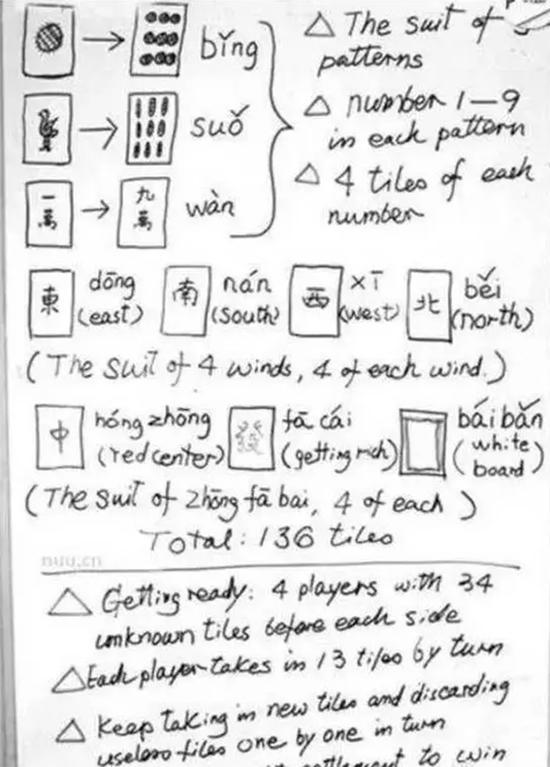 bǐng
△ The suit of
patterns
suǒ
△ number 1—9
in each pattern
一萬 九萬 wàn
△ 4 tiles of each
number
東 dōng (east) 南 nán (south) 西 xī (west) 北 běi (north)
(The suit of 4 winds, 4 of each wind.)
中 hóng zhōng (red center) fā cái (getting rich) bái bǎn (white board)
(The suit of zhōng fā bai, 4 of each)
Total: 136 tiles
nuu.cn
△ Getting ready: 4 players with 34
unknown tiles before each side
△ Each player takes in 13 tiles by turn
△ Keep taking in new tiles and discarding
useless tiles one by one in turn
to win